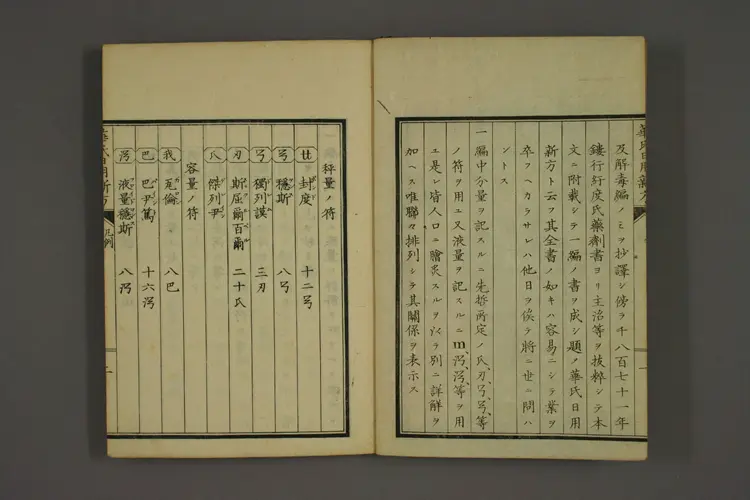 及解毒編ノミヲ抄譯シ傍ラ千八百七十一年
鏤行紆度氏藥劑書ヨリ主治等ヲ抜粹シテ本
文ニ附載シテ一編ノ書ヲ成シ題ノ華氏日用
新方ト云フ其全書ノ如キハ容易ニシテ業ヲ
卒フヘカラサレハ他日ヲ俟テ將ニ世ニ問ハ
ントス
一編中分量ヲ記スルニ先哲所定ノ氏、刃、
ノ符ヲ用エ又液量ヲ記スルニ m、等ヲ用
エ是レ皆人口ニ膾炙スルヲ以テ別ニ詳解ヲ
加ヘス唯聯々排列シテ其關係ヲ表示ス
秤量ノ符
封度 十二
穩斯 八
獨列謨 三刃
刃 斯屈爾百爾 二十氏
氏 傑列尹
容量ノ符
我 瓦倫 八巴
巴 巴尹篤 十六
液量穩斯 八
華氏日用新方 凡例